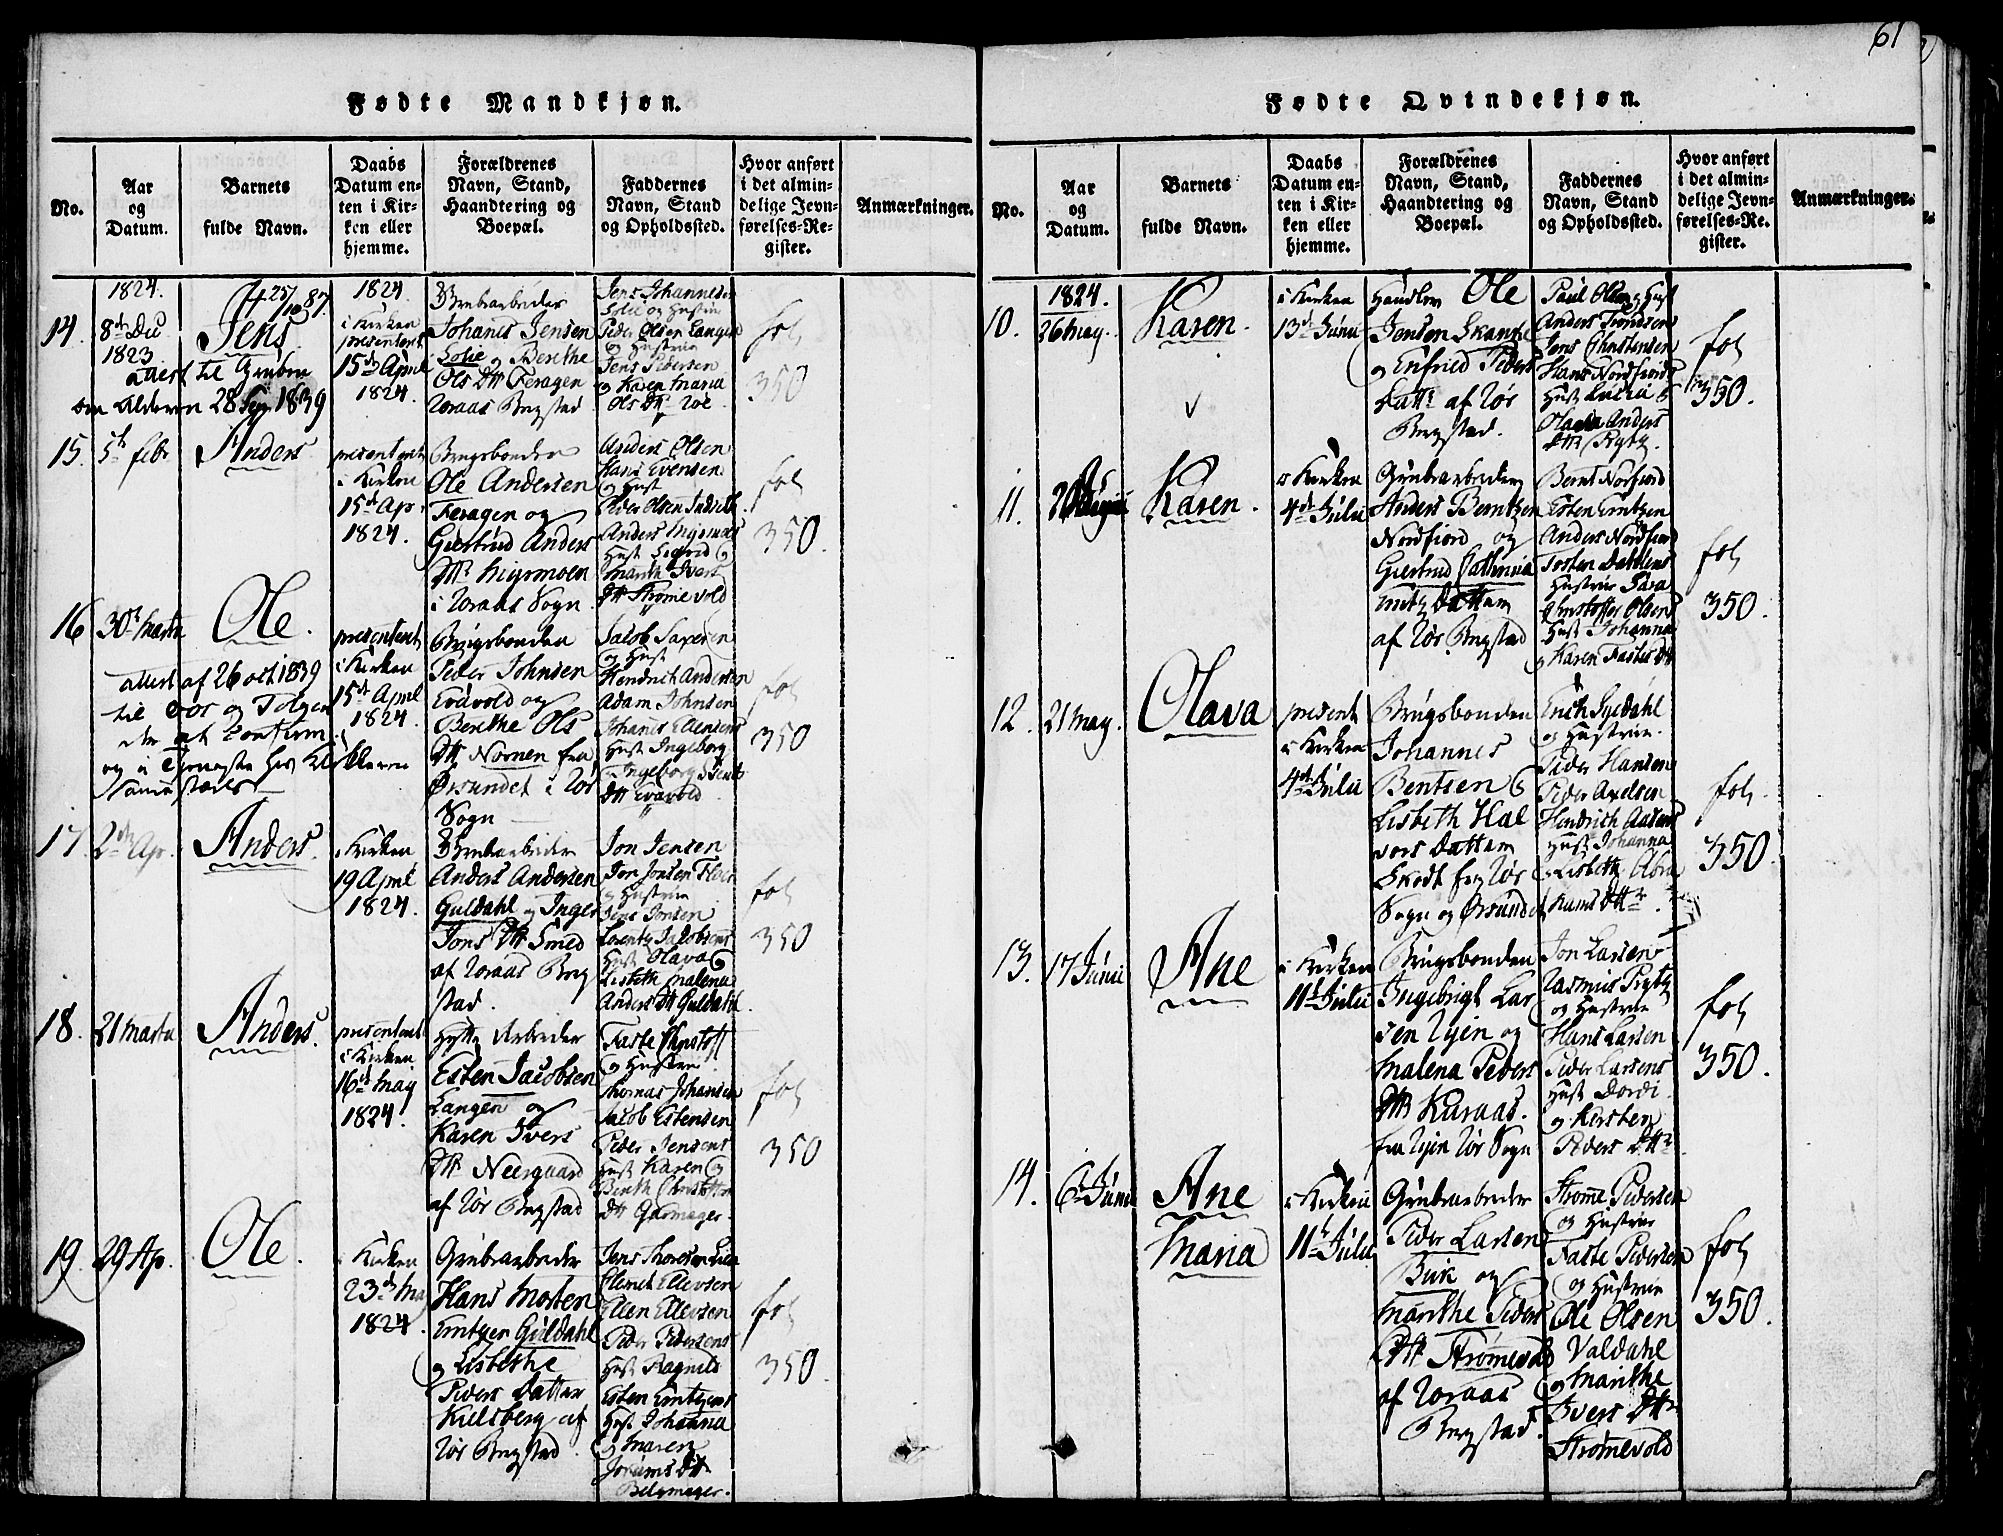 61
Fødte Mandkjøn.
No.
Aar
og
Datum.
Barnets
fulde Navn.
Daabs
Datum en-
ten i Kir-
ken eller
hjemme.
Forældrenes
Navn, Stand,
Haandtering og
Boepæl.
Faddernes
Navn, Stand
og Opholdssted.
Hvor anført
i det almin-
delige Jevn-
førelses-Re-
gister.
Anmærkninger.
14.
1824.
8de
1823.
Jens
attest til Gruben
om Alderen 28 Sep 1839
1824
i Kirken
presenteret
15de April
1824.
Grubearbeider
Johanis Jensen
Solie og Berethe
Ols Dtt Feragen
Roraas Bergstad.
Jens Johannesen
Solie og Hustru
Peder Olsen Langen
og Hustrue
Jens Pedersen
og Karen Maria
Ols Dtr
fol
350
15.
5te febr
Anders
presenteret
i Kirken
15de Ap.
1824.
Brugsbonden
Ole Andersen
Feragen og
Giertrud Anders
Dtr
i Roraas Sogn
Anders Olsen
Hans Evensen
og Hust
Peder Olsen
Anders
Hust Sigrid og
Marith Ivers
Dtt Strømevold
fol
350.
16
30te Martz
Ole.
attest af 26 oct 1839
til Oos og Tolgen
der at Confirm.
og i Tieneste hos Klokkeren
sammestæds
presenteret
i Kirken
15de April
1824.
Brugsbonden
Peder Johnsen
Evavold og
Berethe Ols
Dtt Nornen fra
Ørsundet i Rør
Sogn
Jacob
og Hust
Hendrich Andersen
Adam Johnsen
Johanis Ellensens
Hust Ingeborg
Ingeborg
Dtt Evavold
fol
350
17.
2de Ap.
Anders.
i Kirken
19 April
1824.
Grubearbeider
Anders Andersen
Guldahl og Inger
Jons Dtt Smed
af Roraas Berg
stad.
Jon Jensen
Jon Jonsen
og Hustrue
Jens Jonsen
Lorentz Jacobsens
Hust Olava og
Lisbeth Malena
Anders Dtt Guldahl
fol
350
18.
21 Martz
Anders.
presenteret
i Kirken
16de May
1824.
Hytte Arbeider
Esten Jacobsen
Langen og
Karen Ivers
Dtt Neergaard
af Rør Bergstad
Faste
og Hustrue
Thomas Johansen
Jacob Estensen
Peder Jensens
Hust Karen og
Berith
Dtt Garmager.
fol
350
19.
29 Ap.
Ole.
i Kirken
23de May
1824.
Grubearbeider
Hans Morten
Emtzen Guldahl
og Lisbethe
Peders Datter
Kielsberg af
Rør Bergstad
Jens
Ellevsen
Ellen Ellevsen
Peder Pedersens
Hust Ragnild
Esten Emtzens
Hust Johanna
og Maren
Dtt
Belgmager.
fol
350
Fødte Qvindekjøn.
No.
Aar
og
Datum.
Barnets
fulde Navn.
Daabs
Datum en-
ten i Kir-
ken eller
hjemme.
Forældrenes
Navn, Stand,
Haandtering og
Boepæl.
Faddernes
Navn, Stand
og Opholdssted.
Hvor anført
i det almin-
delige Jevn-
førelses-Re-
gister.
Anmærkninger.
10.
1824.
26 May.
Karen.
i Kirken
13de Juni
Handlen Ole
Jensen Skancke
og Enfried Peders
Datt af Rør
Bergstad.
Paul Olsen og Hust
Anders Trondsen
Jens Christensen
Hans Nordfiords
Hust Lucia &
Olava Anders
Dtt Rytz.
fol
350.
11.
Karen.
i Kirken
4de Julii
Grubearbeider
Anders Berntzen
Nordfiord og
Giertrud Cathrina
Emtz Datter
af Rør Bergstad
Bernt Norfiord
Esten Emtzen
Anders Nordfiord
Torsten Dahlens
Hustrue Sara
Christoffer Olsens
Hust Johanna
og Karen Fastes Dtt
fol
350.
12.
21 May.
Olava
present
i Kirken
4de Julii
Brugsbonden
Johannes
Bentsen og
Lisbeth Hal
vors Datter
Skodt fra Rør
Sogn og Ørsundet
Erich
og Hustrue.
Peder Hansen
Peder Axelsen
Hendrich Aasens
Hust Johanna
Lisbeth Abra
hams Dtr
fol
350
13.
17 Junii
Ane
i Kirken
11te Julii
Brugsbonden
Ingebrigt Lar
sen Ryen og
Malena Peders
Dtt Kuraas.
fra Ryen Rør Sogn
Jon Larsen
Rasmus Rytz
og Hustrue
Hans Larsen
Peder Larsens
Hust Dordi.
og Kirsten
Peders Dtt
fol
350.
14.
6te Junii
Ane
Maria
i Kirken
11te Julii
Grubearbeider
Peder Larsen
Buk og
Marithe Peders
Dtt Strømevold
af Roraas
Bergstad.
Strøme Pedersen
og Hustrue
Faste Pedersen
og Hustrue
Ole Olsen
Valdahl
og Marithe
Ivers Dtt
Strømevold
fol
350.